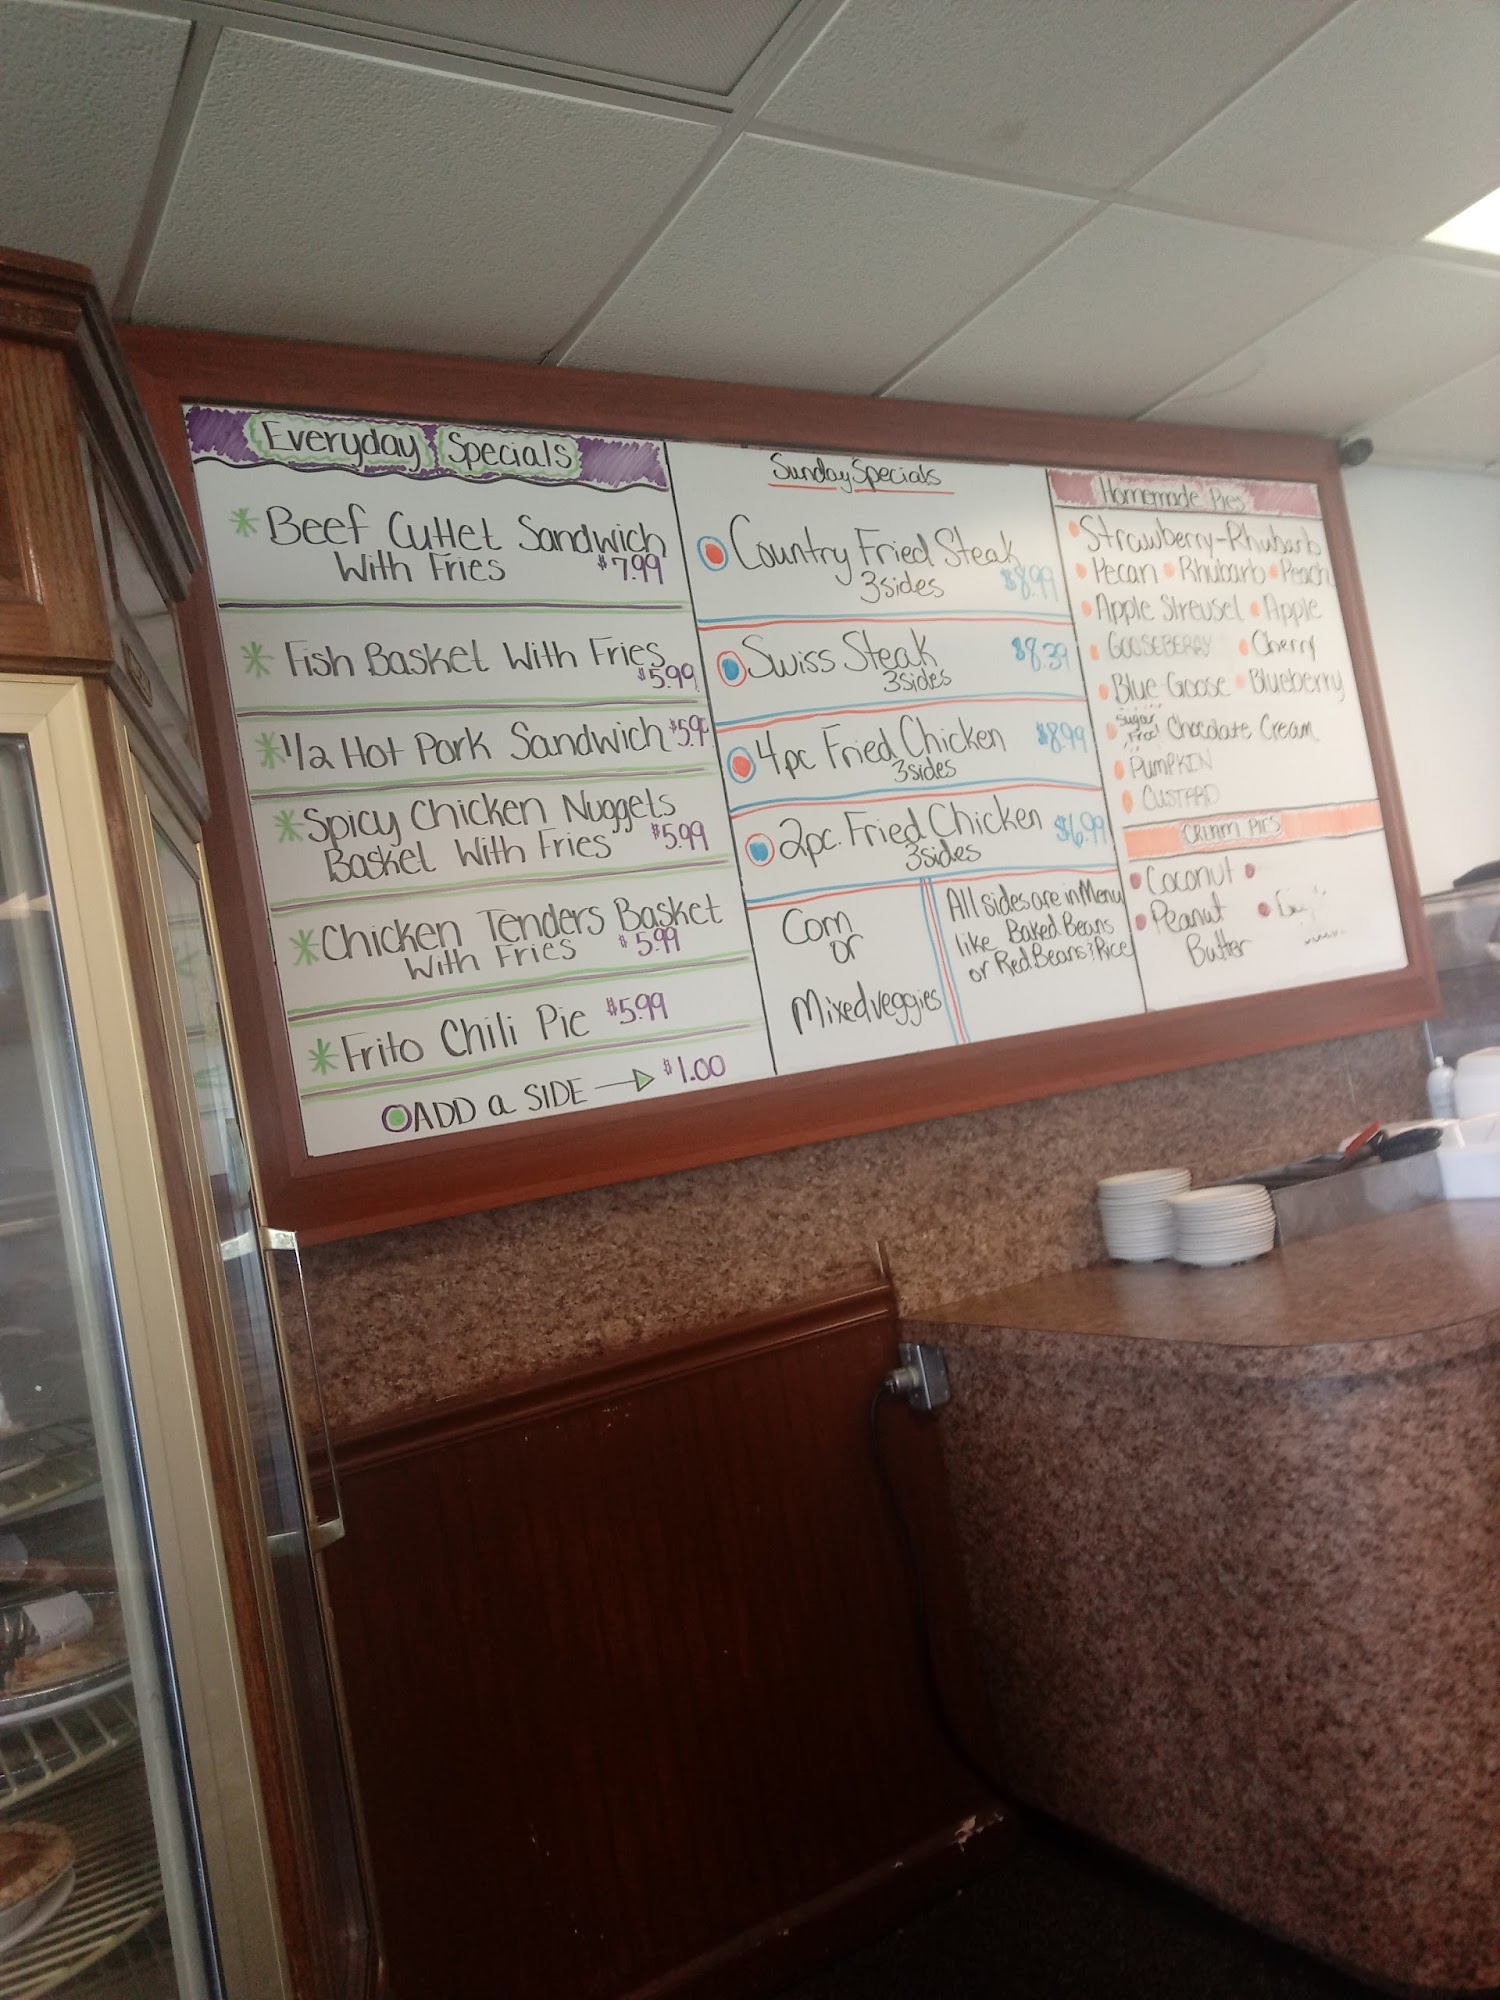 Everyday Specials
Beef Cuttet Sandwich
With Fries $7.99
Fish Basket With Fries
$5.99
1/2 Hot Pork Sandwich $5.99
Spicy Chicken Nuggets
Basket With Fries $5.99
Chicken Tenders Basket
With Fries $5.99
Frito Chili Pie $5.99
ADD a SIDE → $1.00
Sunday Specials
Country Fried Steak
3 sides $8.99
Swiss Steak $8.39
3 sides
4 pc Fried Chicken $8.99
3 sides
2 pc. Fried Chicken $6.99
3 sides
Corn
or
Mixed veggies
All sides are in Menu
like Baked Beans
or Red Beans & Rice
Homemade Pies
Strawberry-Rhubarb
Pecan Rhubarb Peach
Apple Streusel Apple
GOOSEBERRY Cherry
Blue Goose Blueberry
Sugar Free Chocolate Cream
PUMPKIN
CUSTARD
CREAM PIES
Coconut
Peanut
Butter